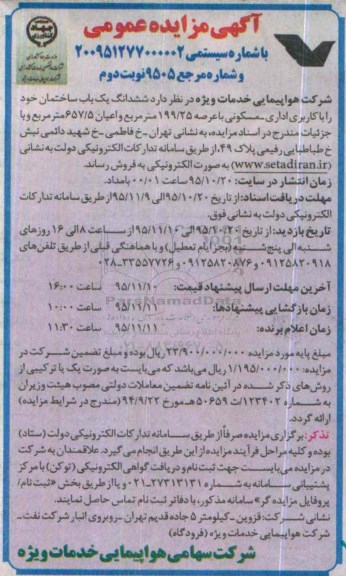 آگهی مزایده عمومی
با شماره سیستمی ۲۰۰۹۵۱۲۷۷۰۰۰۰۰۲
و شماره مرجع ۹۵۰۵ نوبت دوم
شرکت هواپیمایی خدمات ویژه در نظر دارد ششدانگ یک باب ساختمان خود
را با کاربری اداری ـ مسکونی با عرصه ۱۹۹/۲۵ مترمربع و اعیان ۶۵۷/۵ مترمربع و با
جزئیات مندرج در اسناد مزایده، به نشانی تهران ـ خ فاطمی ـ خ شهید دائمی نبش
خ طباطبایی رفیعی پلاک ۴۹، از طریق سامانه تدارکات الکترونیکی دولت به نشانی
(www.setadiran.ir) به صورت الکترونیکی به فروش رساند.
زمان انتشار در سایت: ۹۵/۱۰/۲۰ ساعت ۰۰/۰۱ بامداد.
مهلت دریافت اسناد: از تاریخ ۹۵/۱۰/۲۰ الی ۹۵/۱۱/۹ از طریق سامانه تدارکات
الکترونیکی دولت به نشانی فوق.
تاریخ بازدید: از تاریخ ۹۵/۱۰/۲۰ الی ۹۵/۱۱/۱۰ از ساعت ۸ الی ۱۶ روزهای
شنبه الی پنج‌شنبه (بجز ایام تعطیل) و با هماهنگی قبلی از طریق تلفن‌های
۰۹۱۲۵۸۲۰۹۱۸ و ۰۹۱۲۵۸۲۰۸۷۶ و ۳۳۵۵۷۷۲۶-۰۲۸
آخرین مهلت ارسال پیشنهاد قیمت: ۹۵/۱۱/۱۰ ساعت ۱۶:۰۰
زمان بازگشایی پیشنهادها: ۹۵/۱۱/۱۱ ساعت ۱۰:۰۰
زمان اعلام برنده: ۹۵/۱۱/۱۱ ساعت ۱۱:۳۰
ParsNamadData
مبلغ پایه مورد مزایده ۲۳/۹۰۰/۰۰۰/۰۰۰ ریال بوده و مبلغ تضمین شرکت در
مزایده: ۱/۱۹۵/۰۰۰/۰۰۰ ریال می‌باشد که می‌بایست به صورت یک یا ترکیبی از
روش‌های ذکر شده در آئین نامه تضمین معاملات دولتی مصوب هیئت وزیران
به شماره ۱۲۳۴۰۲/ت ۵۰۶۵۹ هـ مورخ ۹۴/۹/۲۲ (مندرج در شرایط مزایده)
ارائه گردد.
تذکر: برگزاری مزایده صرفاً از طریق سامانه تدارکات الکترونیکی دولت (ستاد)
بوده و کلیه مراحل فرآیند مزایده از این طریق انجام می‌گیرد. علاقمندان به شرکت
در مزایده می‌بایست جهت ثبت نام و دریافت گواهی الکترونیکی (توکن) با مرکز
پشتیبانی سامانه به شماره ۲۷۳۱۳۱۳۱-۰۲۱ و یا از طریق بخش «ثبت نام/
پروفایل مزایده گر» سامانه مذکور، با دفاتر ثبت نام تماس حاصل نمایند.
نشانی شرکت: قزوین ـ کیلومتر ۵ جاده قدیم تهران ـ روبروی انبار شرکت نفت ـ
شرکت هواپیمایی خدمات ویژه (فرودگاه)
شرکت سهامی هواپیمایی خدمات ویژه